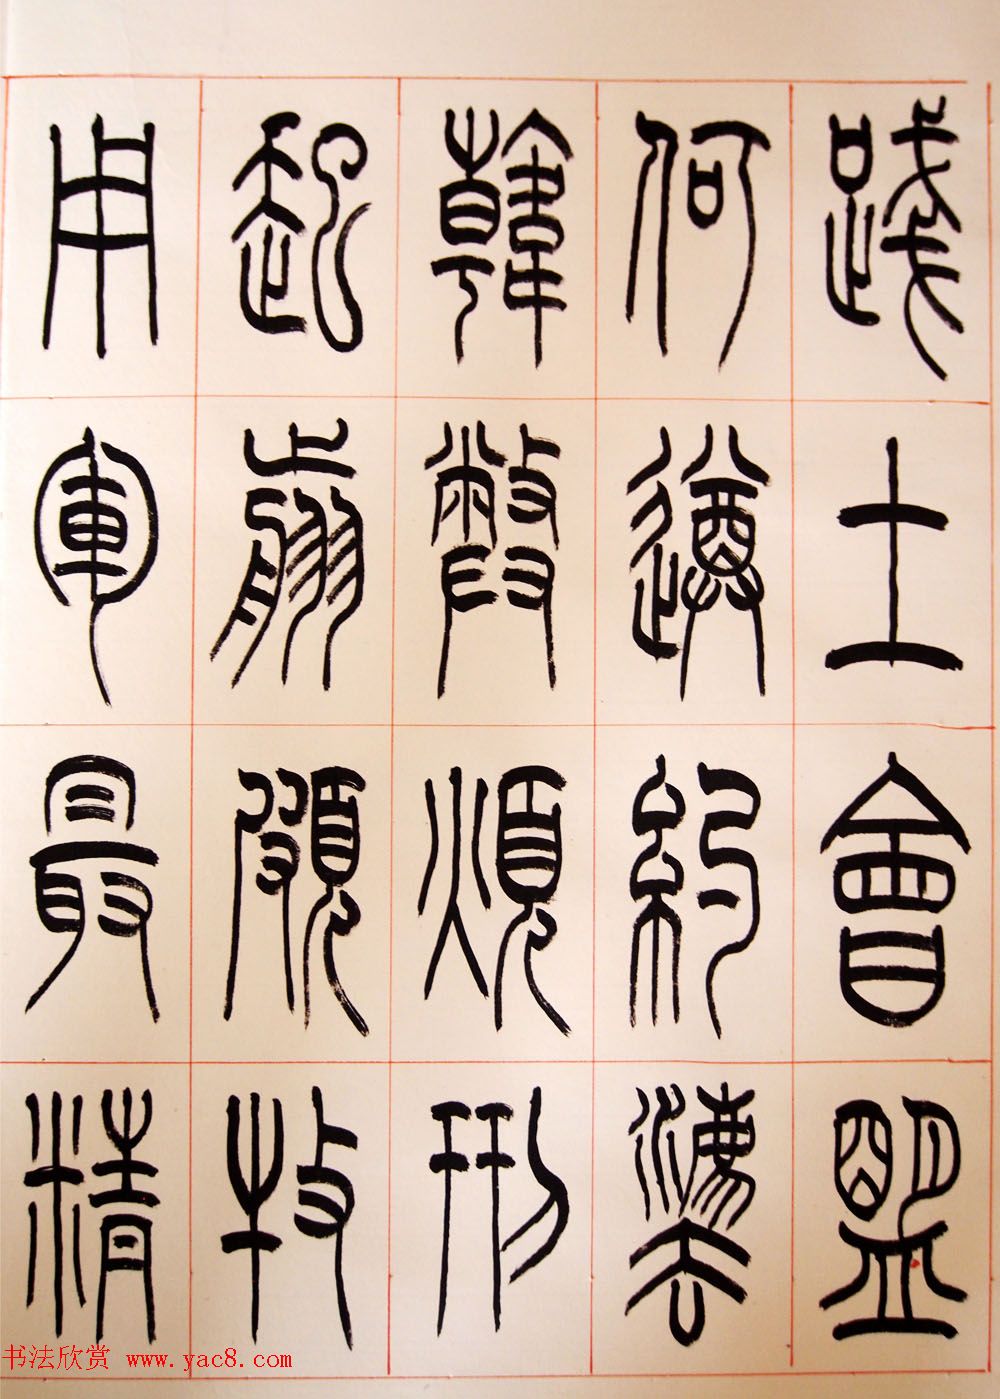 踐土會盟
何遵約灋
韓弊煩刑
起翦頗牧
用軍最精
书法欣赏 www.yac8.com